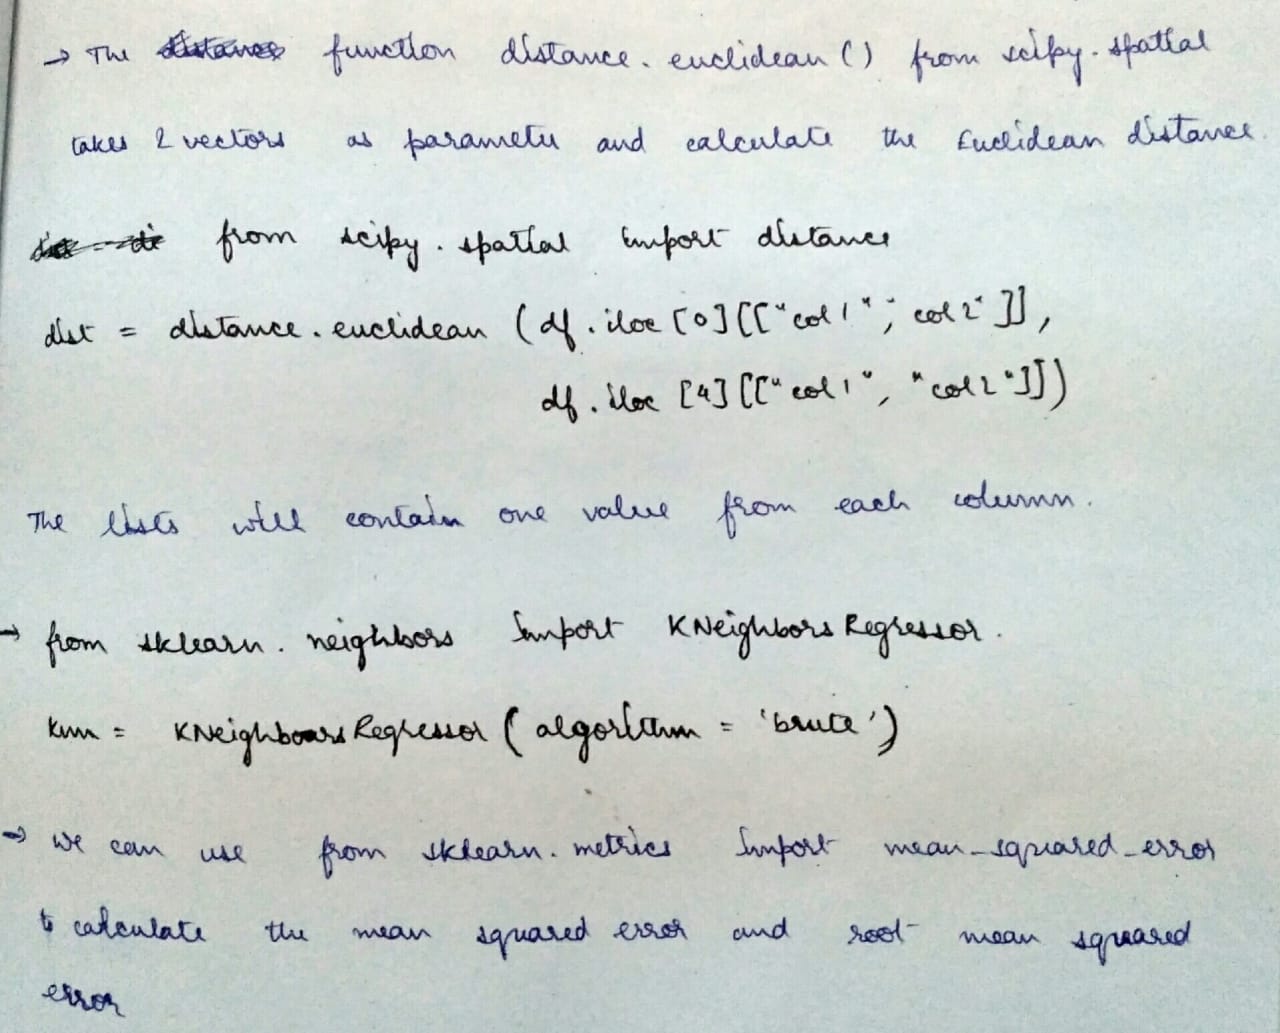 → The function distance.euclidean() from scipy.spatial
takes 2 vectors as parameter and calculate the Euclidean distance.
from scipy.spatial import distance
dist = distance.euclidean (df.iloc [0][["col 1", col 2"]],
df.iloc [4][["col 1", "col 2"]])
The lists will contain one value from each column.
→ from sklearn.neighbors import KNeighborsRegressor.
knn = KNeighboursRegressor (algorithm = 'brute')
→ We can use from sklearn.metrics import mean_squared_error
to calculate the mean squared error and root mean squared
error